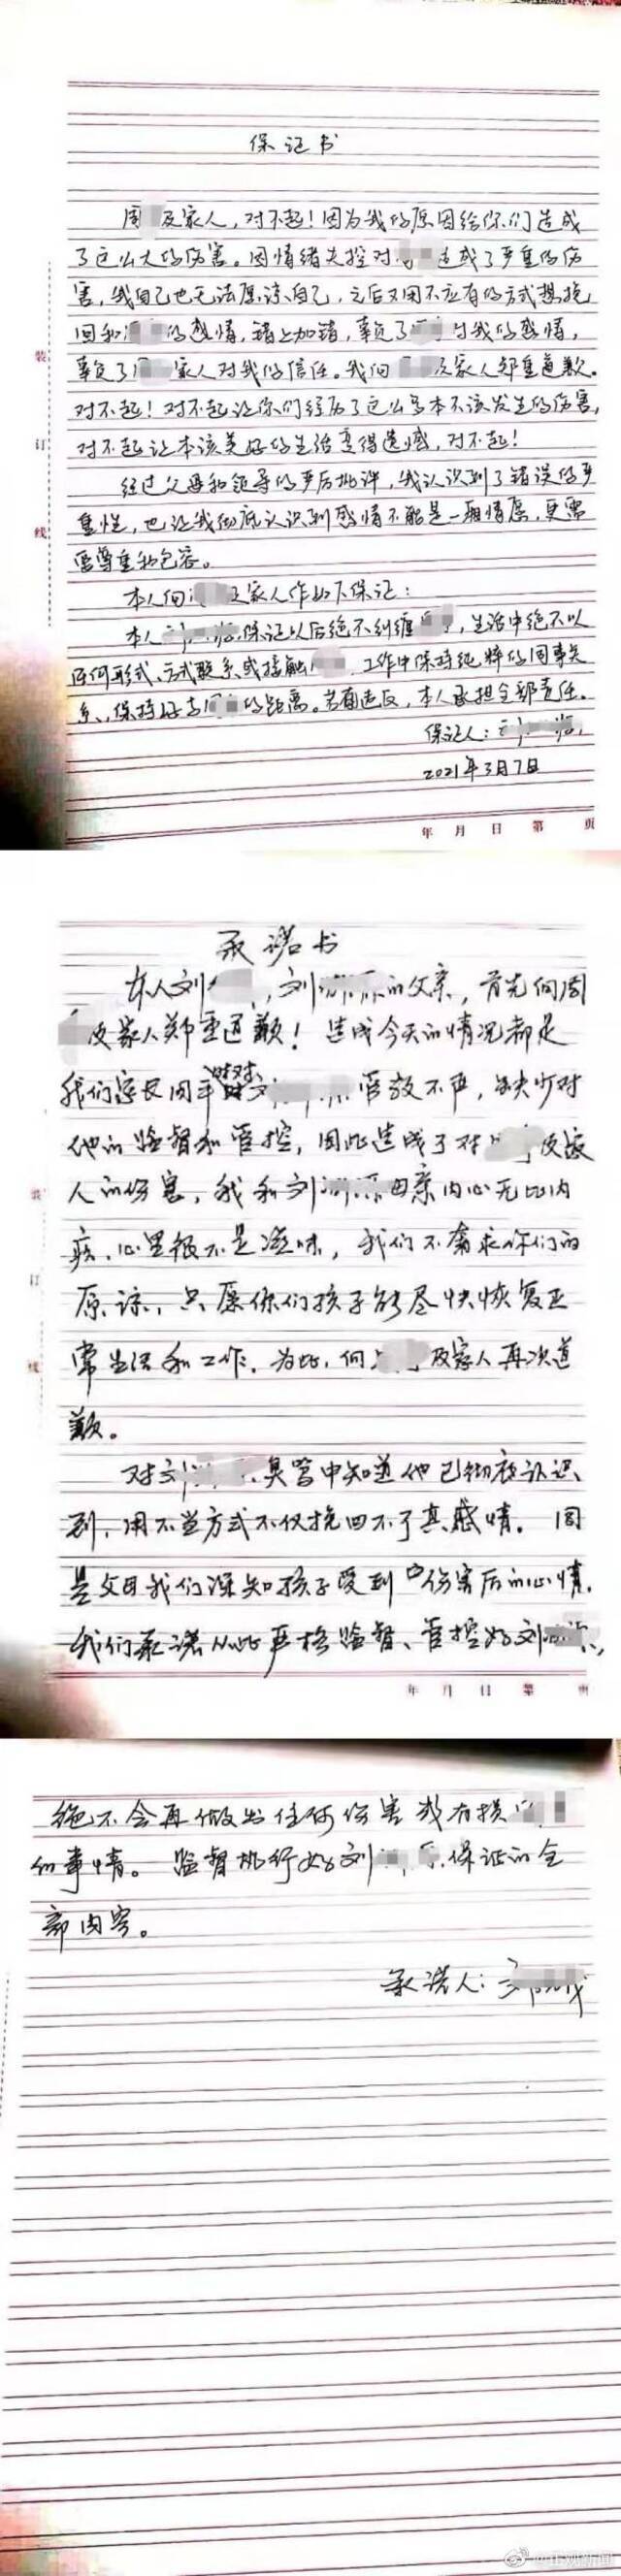 保证书
周 及家人，对不起！因为我的原因给你们造成
了这么大的伤害。因情绪失控对 造成了严重的伤
害，我自己也无法原谅自己，之后又用不应有的方式想挽
回和 的感情，错上加错，辜负了 对我的感情，
辜负了 家人对我的信任。我向 及家人郑重道歉。
对不起！对不起让你们经历了这么多本不该发生的伤害，
对不起让本该美好的生活变得遗憾，对不起！
经过父母和领导的严厉批评，我认识到了错误的严
重性，也让我彻底认识到感情不能是一厢情愿，更需
要尊重和包容。
本人向 及家人作如下保证：
本人 保证以后绝不纠缠 ，生活中绝不以
任何形式、方式联系或接触 ，工作中保持纯粹的同事关
系，保持好与 的距离。若有违反，本人承担全部责任。
保证人：
2021年3月7日
年 月 日 第 页
装
订
线
承诺书
本人刘 ，刘 的父亲，首先向周
及家人郑重道歉！造成今天的情况都是
我们家长同平时对 管教不严，缺少对
他的监督和管控，因此造成了对 及家
人的伤害，我和刘 母亲内心无比内
疚，心里很不是滋味，我们不奢求你们的
原谅，只愿你们孩子能尽快恢复正
常生活和工作。为此，向 及家人再次道
歉。
对刘 中知道他已彻底认识
到，用不当方式不仅挽回不了真感情。同
是父母我们深知孩子受到的伤害后的心情。
我们承诺从此严格监督、管控好刘 ，
年 月 日 第 页
装
订
线
绝不会再做出任何伤害或有损
的事情。监督执行好刘 保证的全
部内容。
承诺人：